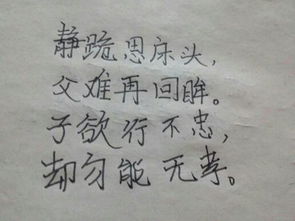 静跪思床头,
父难再回眸。
子欲行不忠,
却勿能无孝。